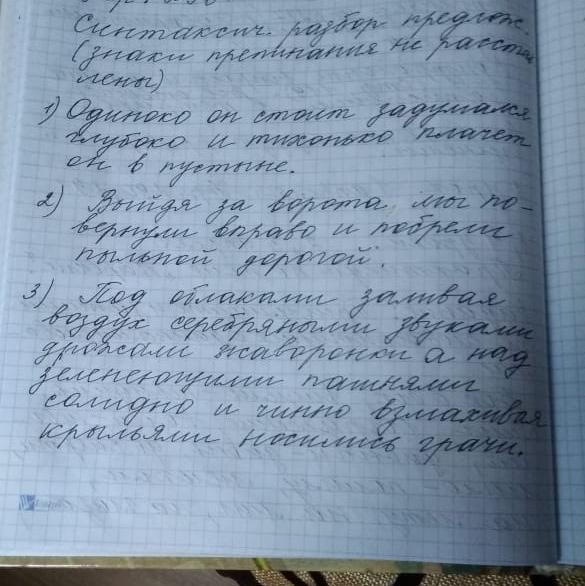 Синтаксич. разбор предлож.
(знаки препинания не расстав
лены)
1) Одиноко он стоит задумался
глубоко и тихонько плачет
он в пустыне.
2) Выйдя за ворота мы по-
вернули вправо и побрели
пыльной дорогой.
3) Под облаками заливая
воздух серебряными звуками
дрожали жаворонки а над
зеленеющими пашнями
солидно и чинно взмахивая
крыльями носились грачи.